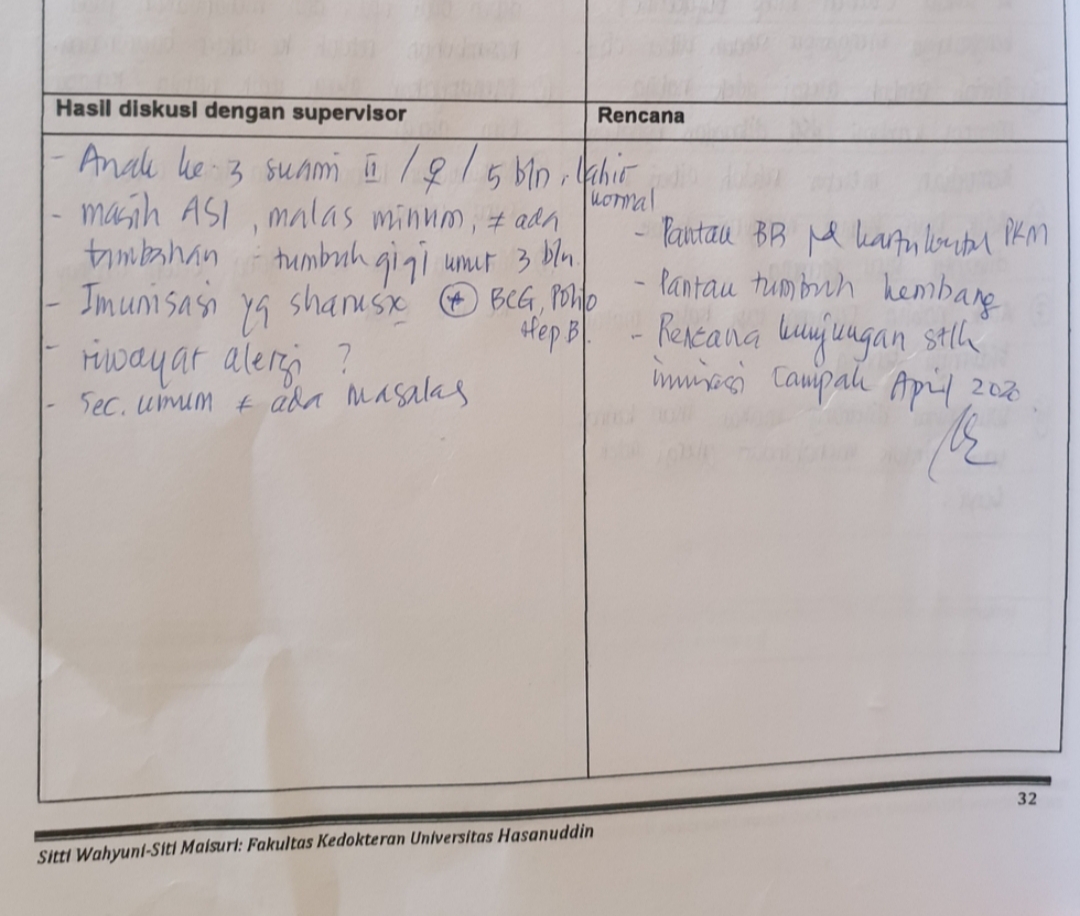 Hasil diskusi dengan supervisor
- Anak ke-3 suami II / ♀ / 5 bln, lahir normal
- masih ASI, malas minum, ≠ ada
tambahan - tumbuh gigi umur 3 bln.
- Imunisasi yg sharusx (+) BCG, Polio
Hep B.
- riwayat alergi ?
- Sec. umum ≠ ada masalah
Rencana
- Pantau BB kartu kontrol PKM
- Pantau tumbuh kembang
- Rencana kunjungan stlh
imunisasi Campak April 2020
32
Sitti Wahyuni-Siti Maisuri: Fakultas Kedokteran Universitas Hasanuddin